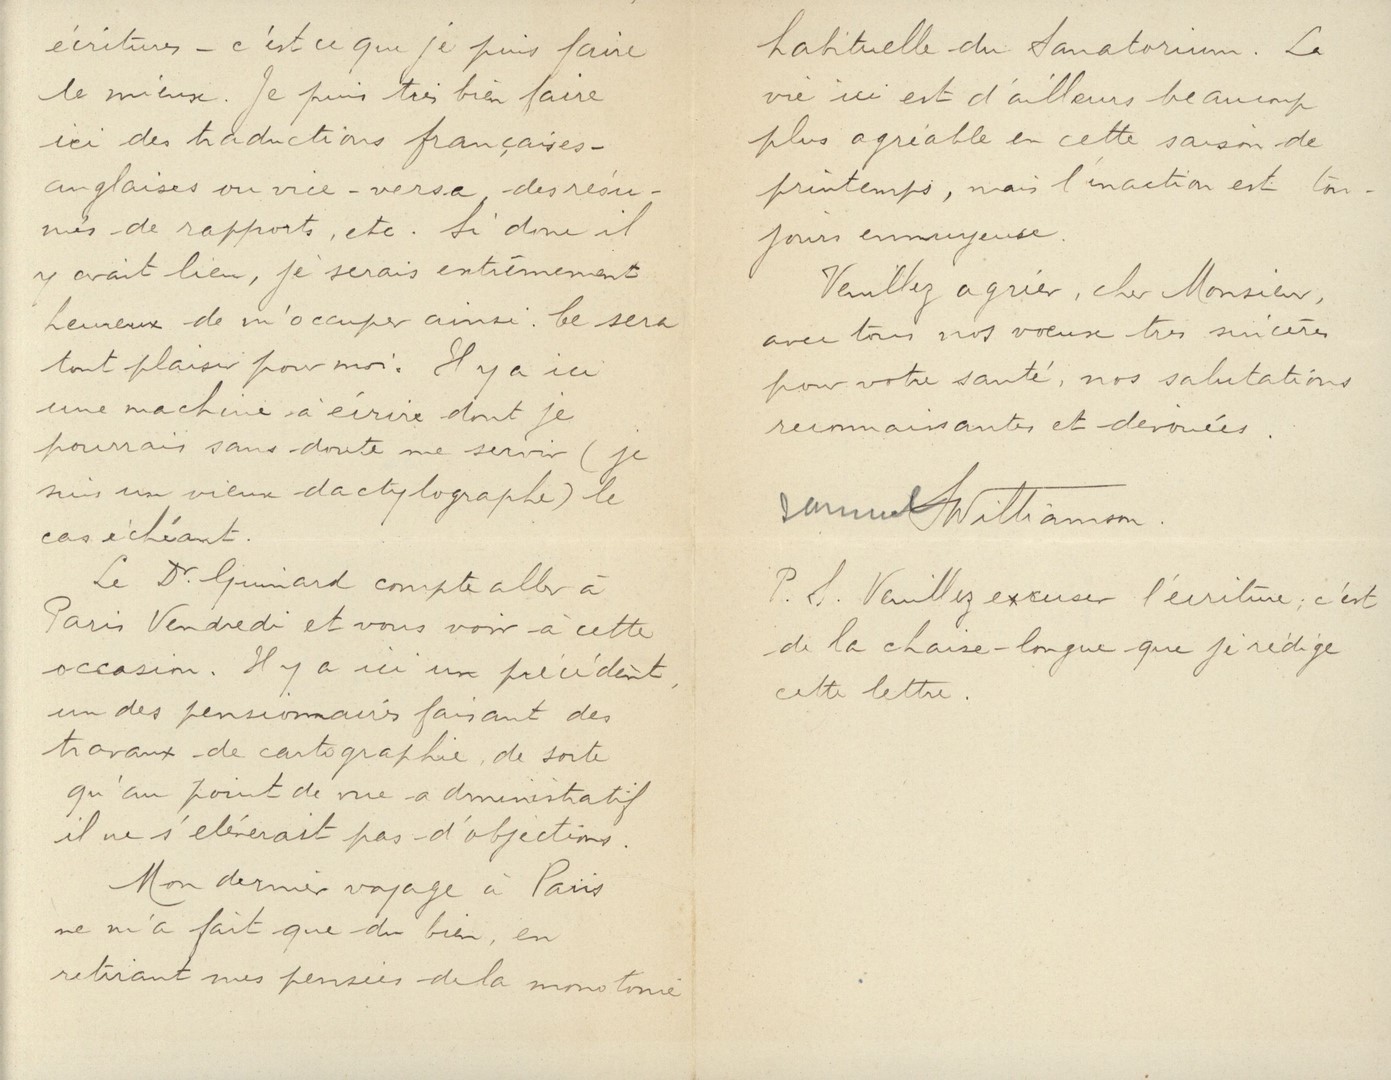 écritures – c'est ce que je puis faire
le mieux. Je puis très bien faire
ici des traductions françaises-
anglaises ou vice-versa, des résu-
més de rapports, etc. Si donc il
y avait lieu, je serais extrêmement
heureux de m'occuper ainsi. Ce sera
tout plaisir pour moi. Il y a ici
une machine à écrire dont je
pourrais sans doute me servir (je
suis un vieux dactylographe) le
cas échéant.
Le Dr. Guinard compte aller à
Paris Vendredi et vous voir à cette
occasion. Il y a ici un précédent,
un des pensionnaires faisant des
travaux de cartographie, de sorte
qu'au point de vue administratif
il ne s'élèverait pas d'objections.
Mon dernier voyage à Paris
ne m'a fait que du bien, en
retirant mes pensées de la monotonie
habituelle du Sanatorium. La
vie ici est d'ailleurs beaucoup
plus agréable en cette saison de
printemps, mais l'inaction est tou-
jours ennuyeuse.
Veuillez agréer, cher Monsieur,
avec tous nos voeux très sincères
pour votre santé, nos salutations
reconnaissantes et dévouées.
Samuel SWilliamson.
P.S. Veuillez excuser l'écriture; c'est
de la chaise-longue que je rédige
cette lettre.